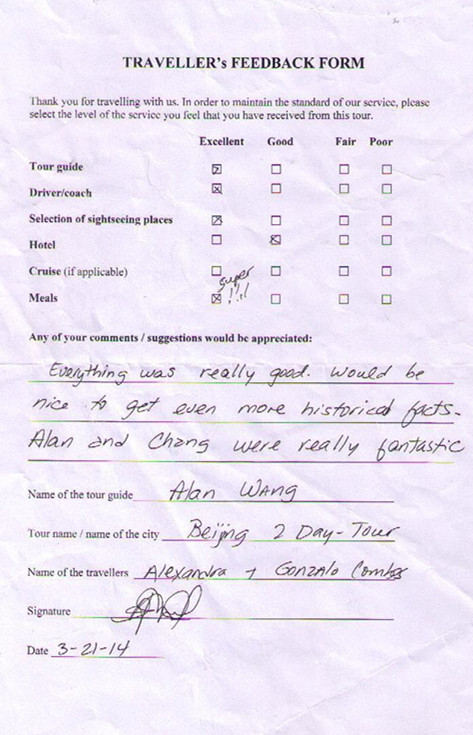 TRAVELLER's FEEDBACK FORM
Thank you for travelling with us. In order to maintain the standard of our service, please
select the level of the service you feel that you have received from this tour.
Excellent Good Fair Poor
Tour guide ☒ ☐ ☐ ☐
Driver/coach ☒ ☐ ☐ ☐
Selection of sightseeing places ☒ ☐ ☐ ☐
Hotel ☐ ☒ ☐ ☐
Cruise (if applicable) ☐ ☐ ☐ ☐
super
Meals ☒ !!! ☐ ☐ ☐
Any of your comments / suggestions would be appreciated:
Everything was really good. Would be
nice to get even more historical facts.
Alan and Chang were really fantastic
Name of the tour guide Alan Wang
Tour name / name of the city Beijing 2 Day-Tour
Name of the travellers Alexandra + Gonzalo
Signature
Date 3-21-14